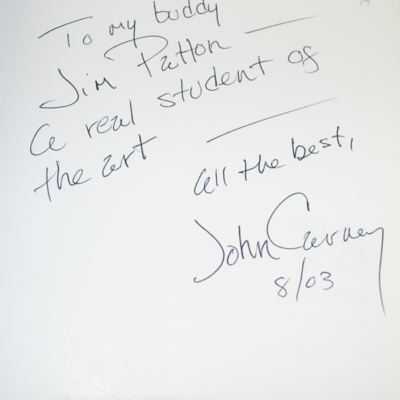 To my buddy
Jim Patton —
a real student of
the art —
all the best,
John Carney
8/03